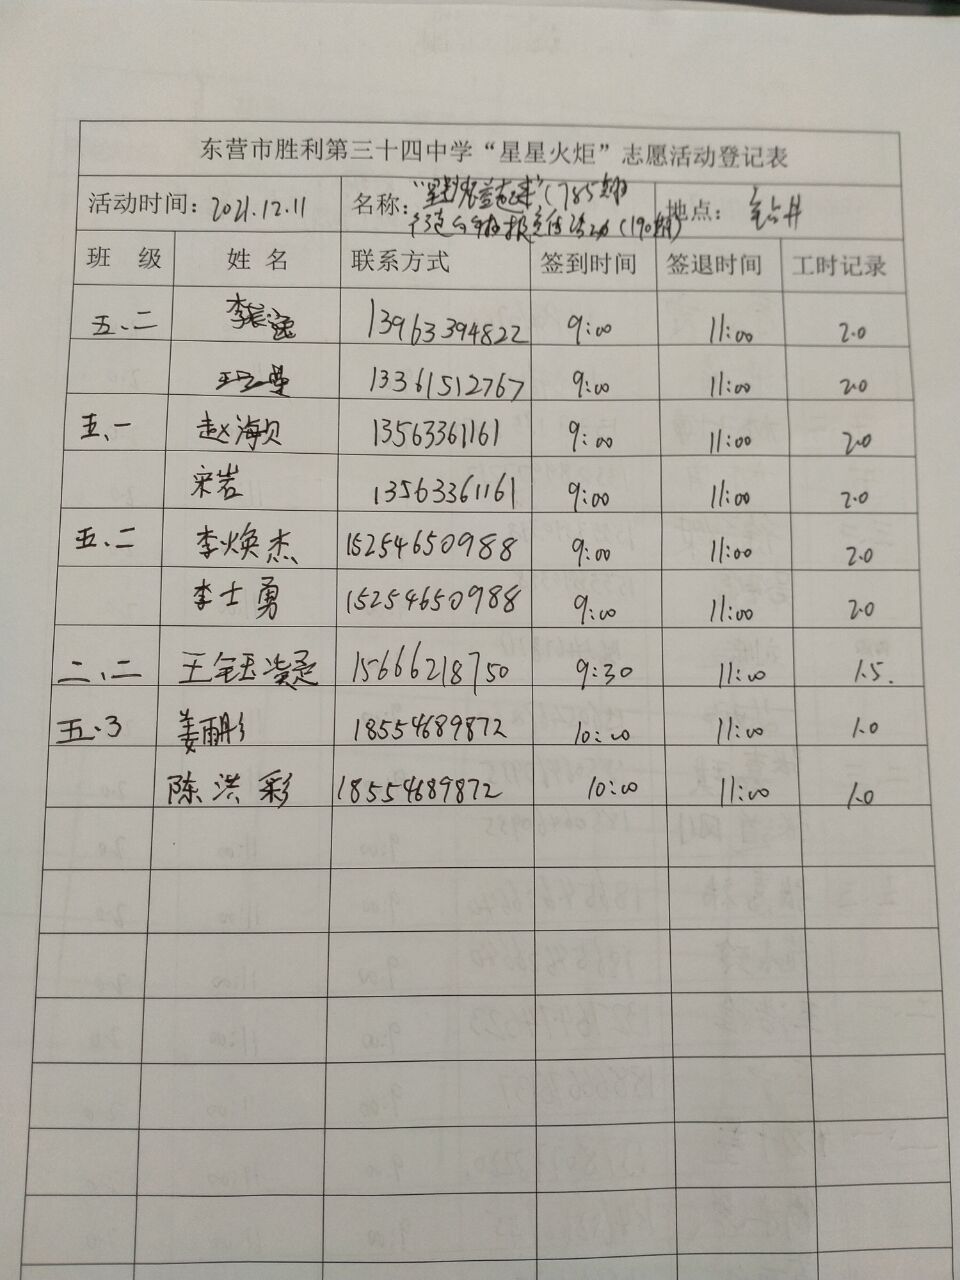 东营市胜利第三十四中学“星星火炬”志愿活动登记表
活动时间：2021.12.11 名称： （785期） （190期） 地点：钻井
班 级 姓 名 联系方式 签到时间 签退时间 工时记录
五、二 李宸逸 13963394822 9:00 11:00 2.0
13361512767 9:00 11:00 2.0
五、一 赵海颂 13563361161 9:00 11:00 2.0
宋岩 13563361161 9:00 11:00 2.0
五、二 李焕杰 15254650988 9:00 11:00 2.0
李士勇 15254650988 9:00 11:00 2.0
二、二 王钰 15666218750 9:30 11:00 1.5.
五、3 姜雨彤 18554689872 10:00 11:00 1.0
陈洪彩 18554689872 10:00 11:00 1.0